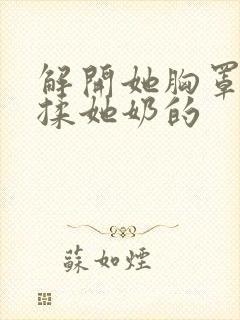 解開她胸罩
揉她奶的
蘇如煙